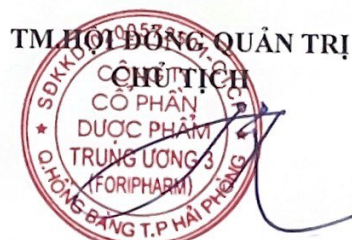 TM.HỘI ĐỒNG QUẢN TRỊ
CHỦ TỊCH
CÔNG TY
CỔ PHẦN
DƯỢC PHẨM
TRUNG ƯƠNG 3
(FORIPHARM)
Q.HỒNG BÀNG T.P HẢI PHÒNG